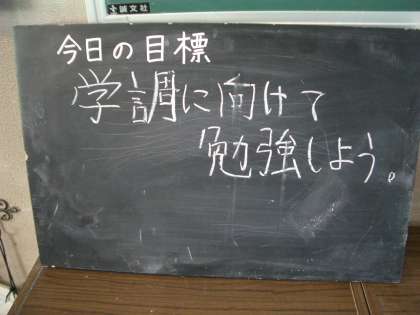 誠文社
今日の目標
学調に向けて
勉強しよう。